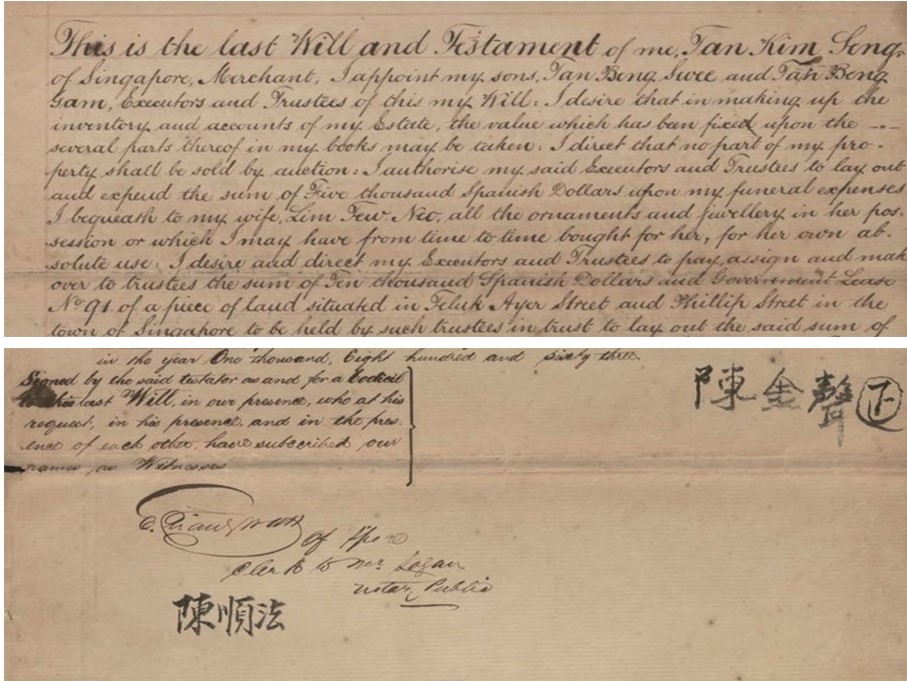 This is the last Will and Testament of me, Tan Kim Seng,
of Singapore, Merchant, I appoint my sons, Tan Beng Swee and Tan Beng
Gam, Executors and Trustees of this my Will: I desire that in making up the
inventory and accounts of my Estate, the value which has been fixed upon the
several parts thereof in my books may be taken: I direct that no part of my pro-
perty shall be sold by auction: I authorise my said Executors and Trustees to lay out
and expend the sum of Five thousand Spanish Dollars upon my funeral expenses
I bequeath to my wife, Lim Tew Neo, all the ornaments and jewellery in her pos-
session or which I may have from time to time bought for her, for her own ab-
solute use: I desire and direct my Executors and Trustees to pay, assign and mak
over to trustees the sum of Ten thousand Spanish Dollars and Government Lease
No 91 of a piece of land situated in Teluk Ayer Street and Phillip Street in the
town of Singapore to be held by such trustees in trust to lay out the said sum of
in the year One thousand, Eight hundred and sixty three.
Signed by the said testator as and for a Codicil
to his last Will, in our presence, who at his
request, in his presence, and in the pres-
ence of each other have subscribed our
names as Witnesses
陳金聲
Clerk to Mr. Logan
Notary Public
陳順法